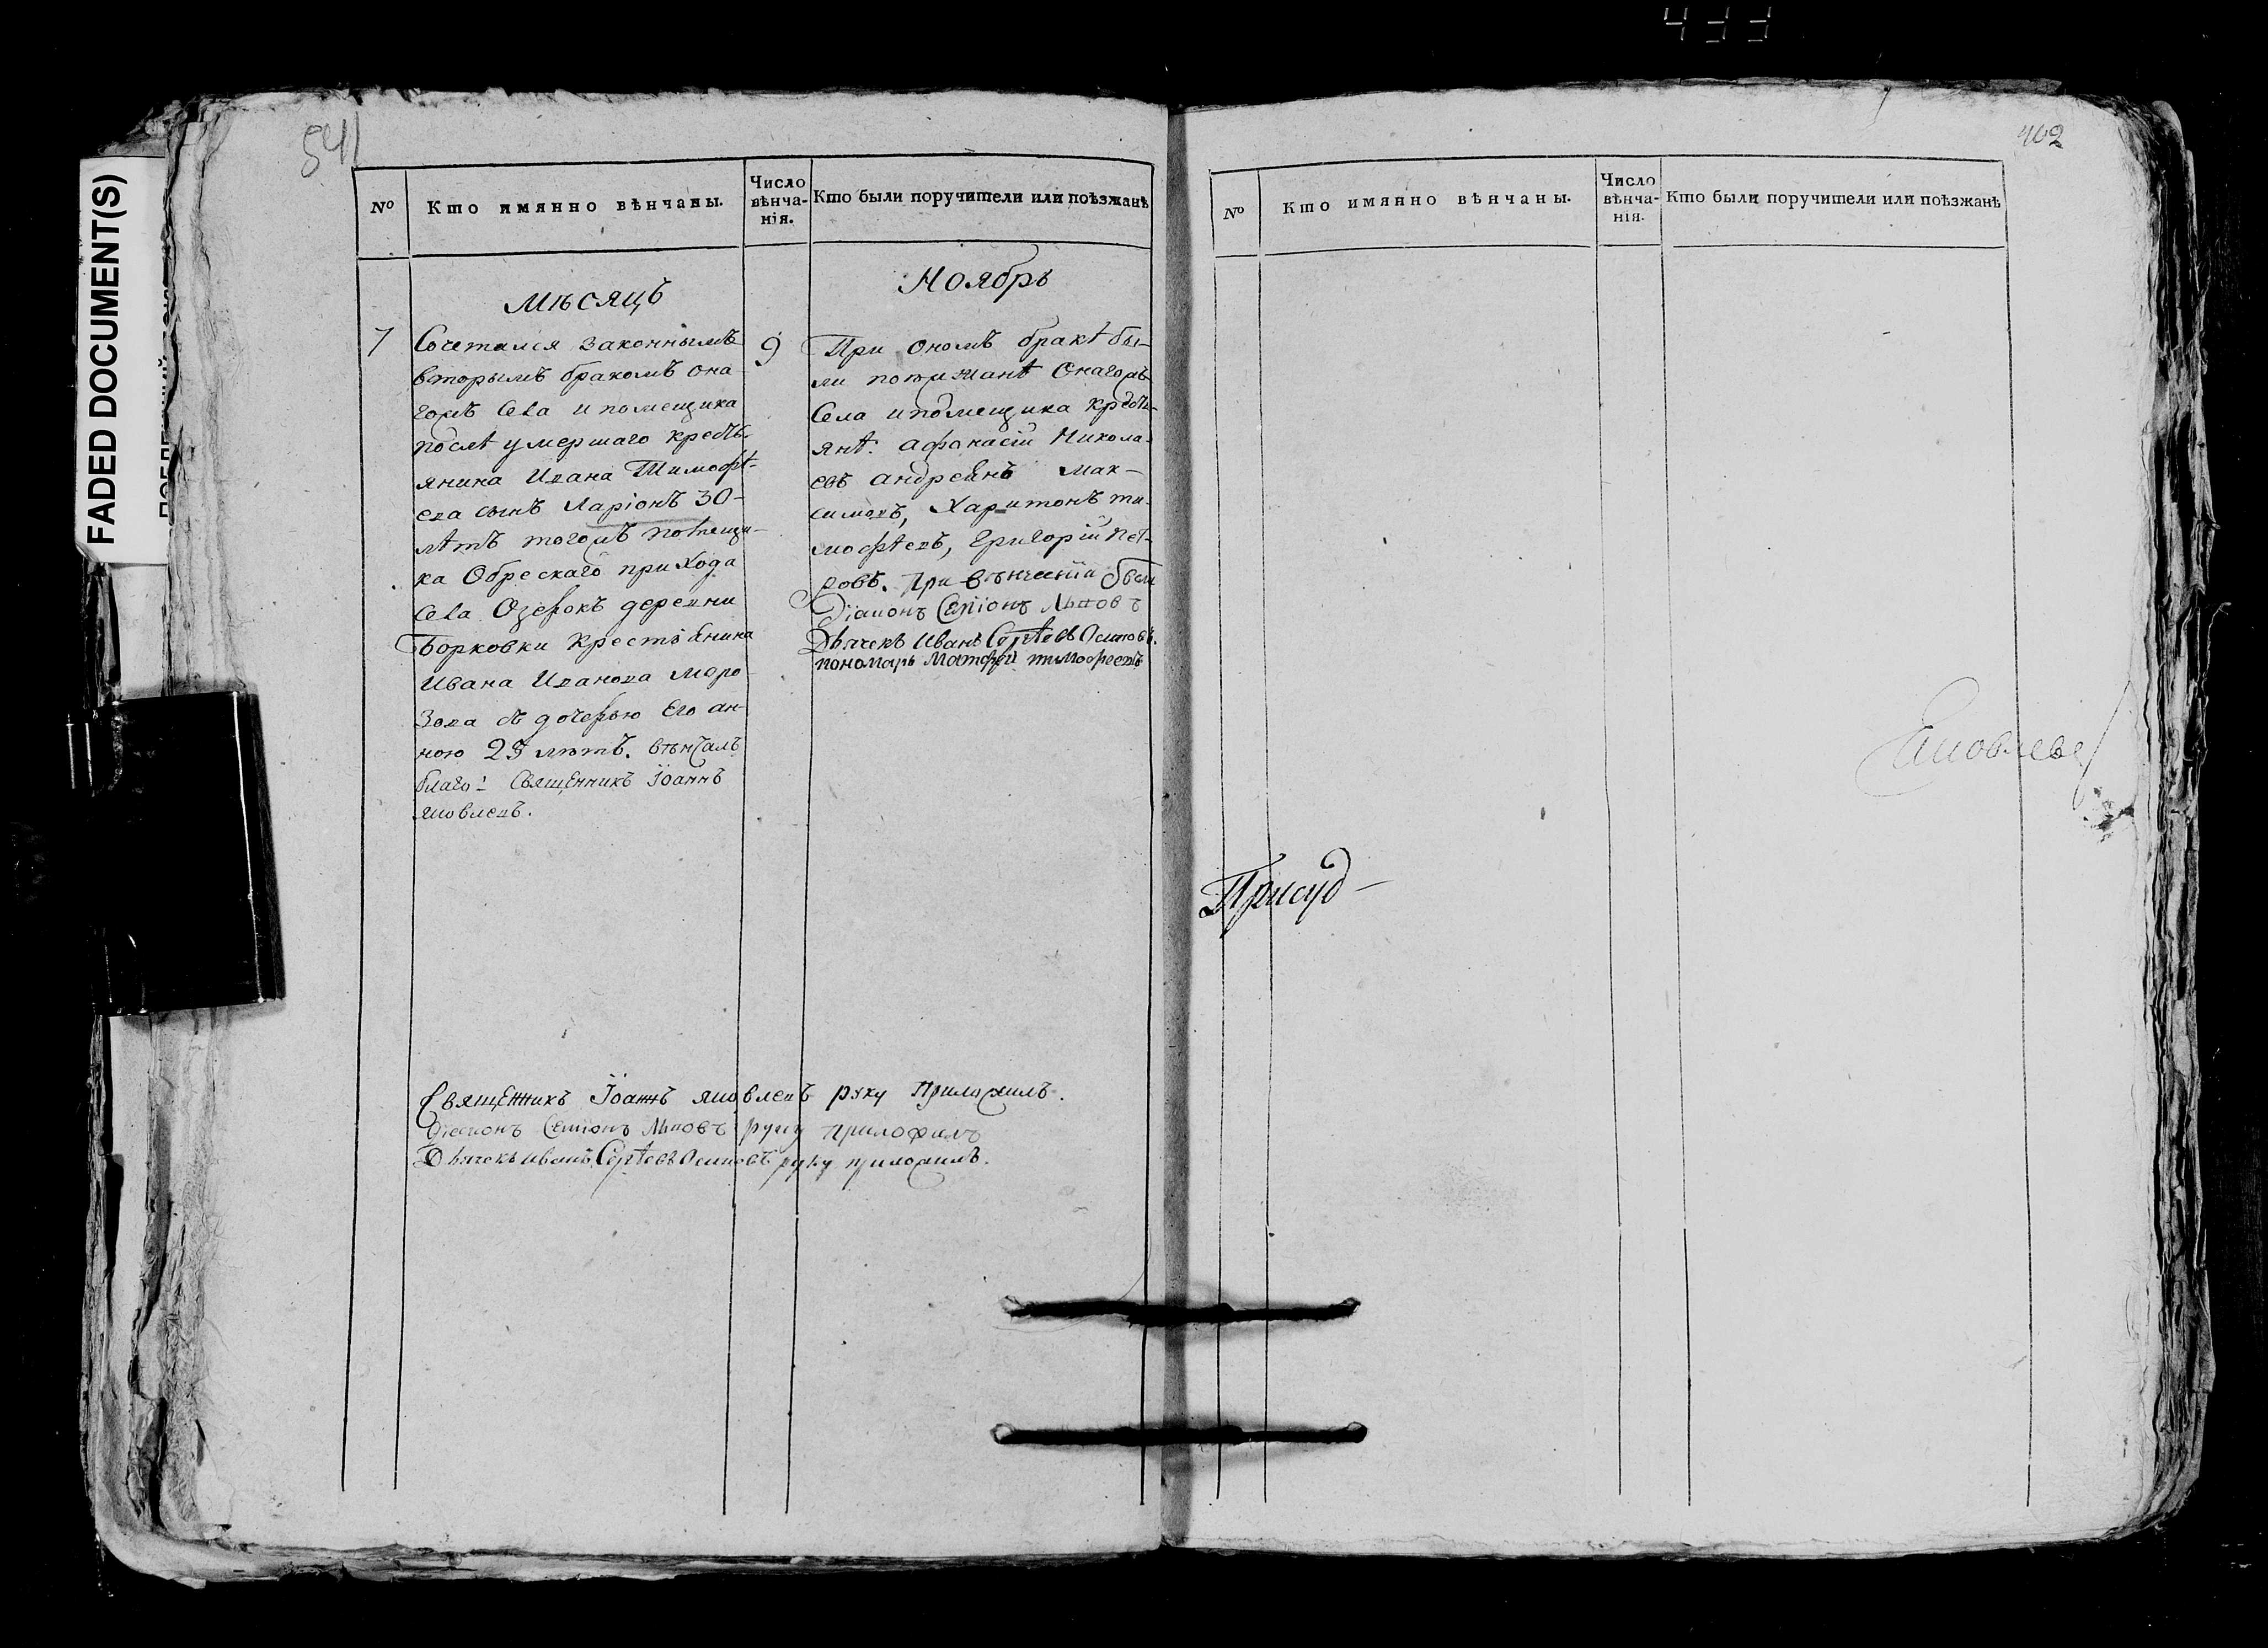 433
FADED DOCUMENT(S)
541
№ Кто имянно вѣнчаны. Число вѣнча-нія. Кто были поручители или поѣзжанѣ
Мѣсяцъ
7
Сочетался законнымъ
вторымъ бракомъ она
гожъ села и помещика
послѣ умершаго кресть-
янина Ивана Тимофѣ-
ева сынъ Ларіонъ 30-
лѣтъ тогожъ помещи-
ка Обрескаго прихода
села Озерокъ деревни
Борковки крестьянина
Ивана Иванова Моро
зова съ дочерью его ан-
ною 25 лѣтъ. вѣнчалъ
благо: Священникъ Іоаннъ
яковлевъ.
9
Ноябрь
При ономъ бракѣ бы-
ли поѣзжанѣ Онагожъ
села и помещика кресть-
янѣ: афонасій Никола-
евъ андреянъ Мак-
симовъ, Харитонъ ти-
мофѣевъ, Григорій Пет-
ровъ. При вѣнчаніи были
Діаконъ Семіонъ Львовъ
Дьячекъ Иванъ Сергѣевъ Осиповъ.
пономарь Матфей тимофеевъ
Священникъ Іоаннъ яковлевъ руку приложилъ.
Діаконъ Семіонъ Львовъ руку приложилъ
Дьячекъ иванъ Сергѣевъ Осиповъ руку приложилъ.
402
№ Кто имянно вѣнчаны. Число вѣнча-нія. Кто были поручители или поѣзжанѣ
Присуд-